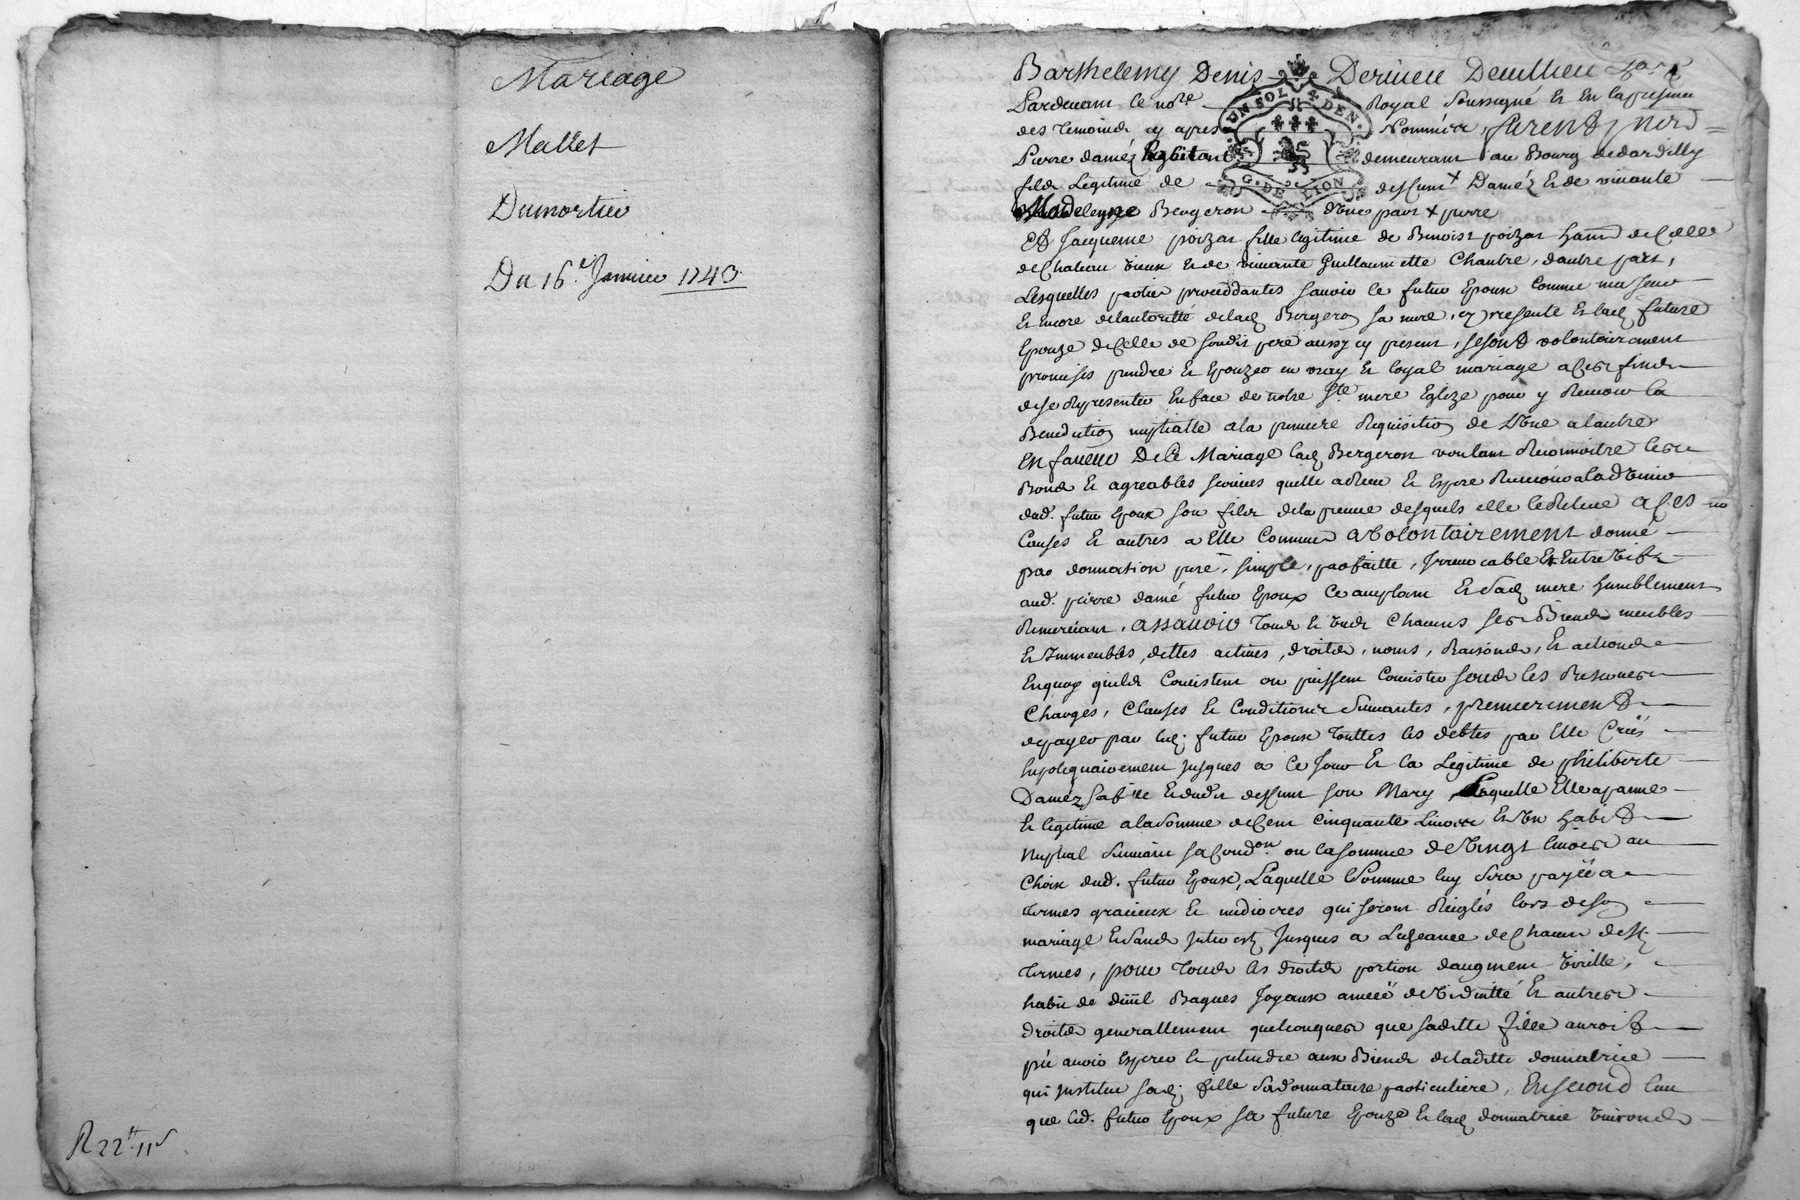 Mariage
Mallet
Dumortier
Du 16.e Janvier 1743
R 22tt 11s
Barthelemy Denis
Pardevant le nore Royal soussigné et en la presence
des temoins cy apres Nommés, furent
UN SOL 4 DEN.
G. DE LION
Pierre daméz habitant demeurant au Bourg de dardilly
fils Legitime de deffunt Daméz et de vivante
Madeleyne Bergeron d'une part
Et Jacqueme poizat fille legitime de Benoist poizat
de Chateau vieux et de vivante Guillaumette Chantre, dautre part,
Lesquelles parties proceddantes scavoir le futur Epoux comme majeur
et encore de lautoritté de lad. Bergeron sa mere, cy presente et lad. future
Epouze de Celle de soudit pere aussy cy present, se sont volontairement
promises prendre et Epouzer en vray et loyal mariage a ces fins
de se Representer en face de notre Ste mere Eglize pour y Recevoir la
Benediction nuptialle a la premiere Requisition de L'une a lautre
En faveur De Ce Mariage lad. Bergeron voulant Reconnoitre les
Bons et agreables services quelle a Receu et Espere Recevoir a ladvenir
dud. futur Epoux son fils de la preuve desquels elle le Releve a Ces
Causes et autres a Elle Connues a volontairement donné
par donnation pure, simple, parfaitte, Irrevocable Et Entre vifs
aud. pierre damé futur Epoux Ce acceptant et sad. mere humblement
Remerciant, assavoir Tous et un Chacuns ses Biens meubles
et Immeubles, dettes actives, droits, noms, Raisons, et actions
En quoy quils Consistent ou puissent Consister sous les Reserves
Charges, Clauses et Conditions suivantes, premierement
de payer par led. futur Epoux touttes les debtes par Elle Créés
hypotequairement jusques a Ce Jour et la Legitime de philiberte
Daméz sa fille et dudit deffunt son Mary, Laquelle Elle apanne
et legitime a la somme de Cent Cinquante Livres et un habit
Nuptial suivant sa Condon ou la somme de Vingt livres au
Choix dud. futur Epoux, Laquelle somme luy sera payée a
termes gracieux et mediocres qui seront Reiglés lors de son
mariage et sans Interest Jusques a Lecheance de Chacun desd.
termes, pour tous les droits portion daugment virille,
habit de deüil Bagues Joyaux année de viduitté et autres
droits generallement quelconques que saditte fille auroit
pû avoir Esperer et pretendre aux Biens de laditte donnatrice
qui institue sad. fille sa donnataire particuliere, En second lieu
que led. futur Epoux sa future Epouze et lad. donnatrice vivront